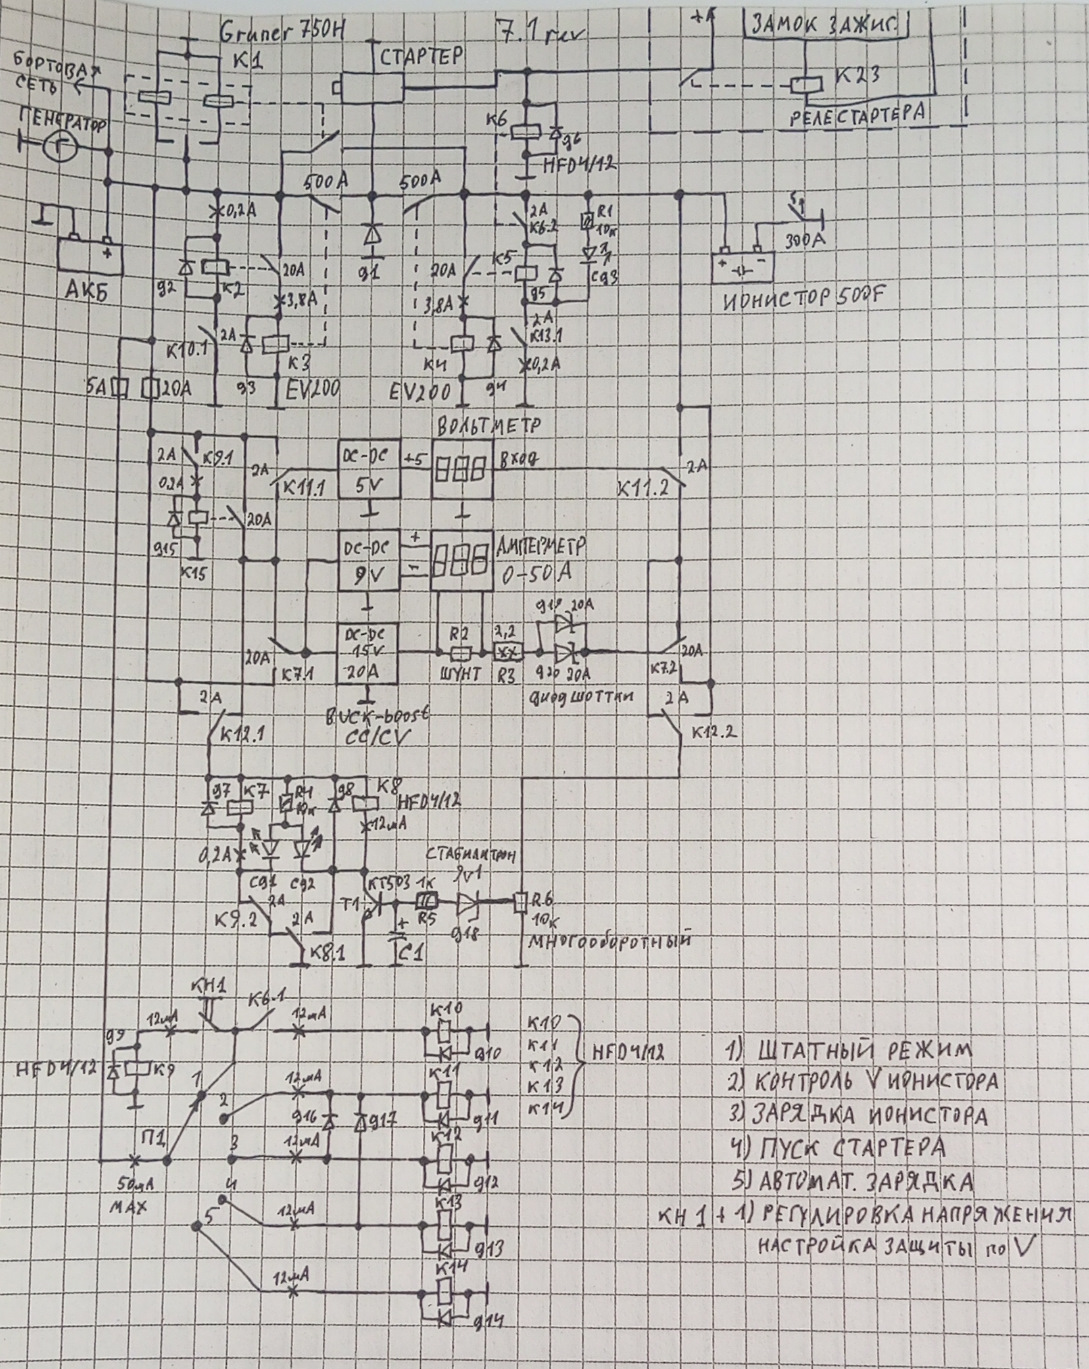 Gruner 750H
7.1 rev
ЗАМОК ЗАЖИГ.
K1
СТАРТЕР
+
K23
РЕЛЕ СТАРТЕРА
БОРТОВАЯ
СЕТЬ
ГЕНЕРАТОР
Г
K6
g6
HFD4/12
500A
500A
0,2A
2A
K6.2
R1
10к
S1
300A
АКБ
+
g2
K2
20A
g1
20A
K5
g5
cg3
+ -
ИОНИСТОР 500F
3,8A
3,8A
2A
K13.1
0,2A
K10.1
2A
g3
K3
EV200
K4
g4
EV200
5A
20A
ВОЛЬТМЕТР
2A
K9.1
0.2A
2A
K11.1
DC-DC
5V
+5
ВХОД
2A
K11.2
g15
20A
K15
DC-DC
9V
+
-
АМПЕРМЕТР
0-50A
20A
K7.1
DC-DC
15V
20A
R2
ШУНТ
2,2
R3
g19 20A
g20 20A
ДИОД ШОТТКИ
20A
K7.2
2A
K12.1
BUCK-boost
CC/CV
2A
K12.2
g7
K7
R4
10к
g8
K8
HFD4/12
12мА
0,2A
cg1
cg2
СТАБИЛИТРОН
9V1
KT503
T1
1к
R5
g18
R6
10к
МНОГООБОРОТНЫЙ
K9.2
2A
2A
K8.1
+
C1
КН1
K6.1
12мА
12мА
g9
HFD4/12
K9
K10
g10
K10
K11
K12
K13
K14
HFD4/12
1
2
3
4
5
П1
50мА
MAX
12мА
g16
g17
12мА
12мА
12мА
K11
g11
K12
g12
K13
g13
K14
g14
1) ШТАТНЫЙ РЕЖИМ
2) КОНТРОЛЬ V ИОНИСТОРА
3) ЗАРЯДКА ИОНИСТОРА
4) ПУСК СТАРТЕРА
5) АВТОМАТ. ЗАРЯДКА
КН 1 + 1) РЕГУЛИРОВКА НАПРЯЖЕНИЯ
НАСТРОЙКА ЗАЩИТЫ по V